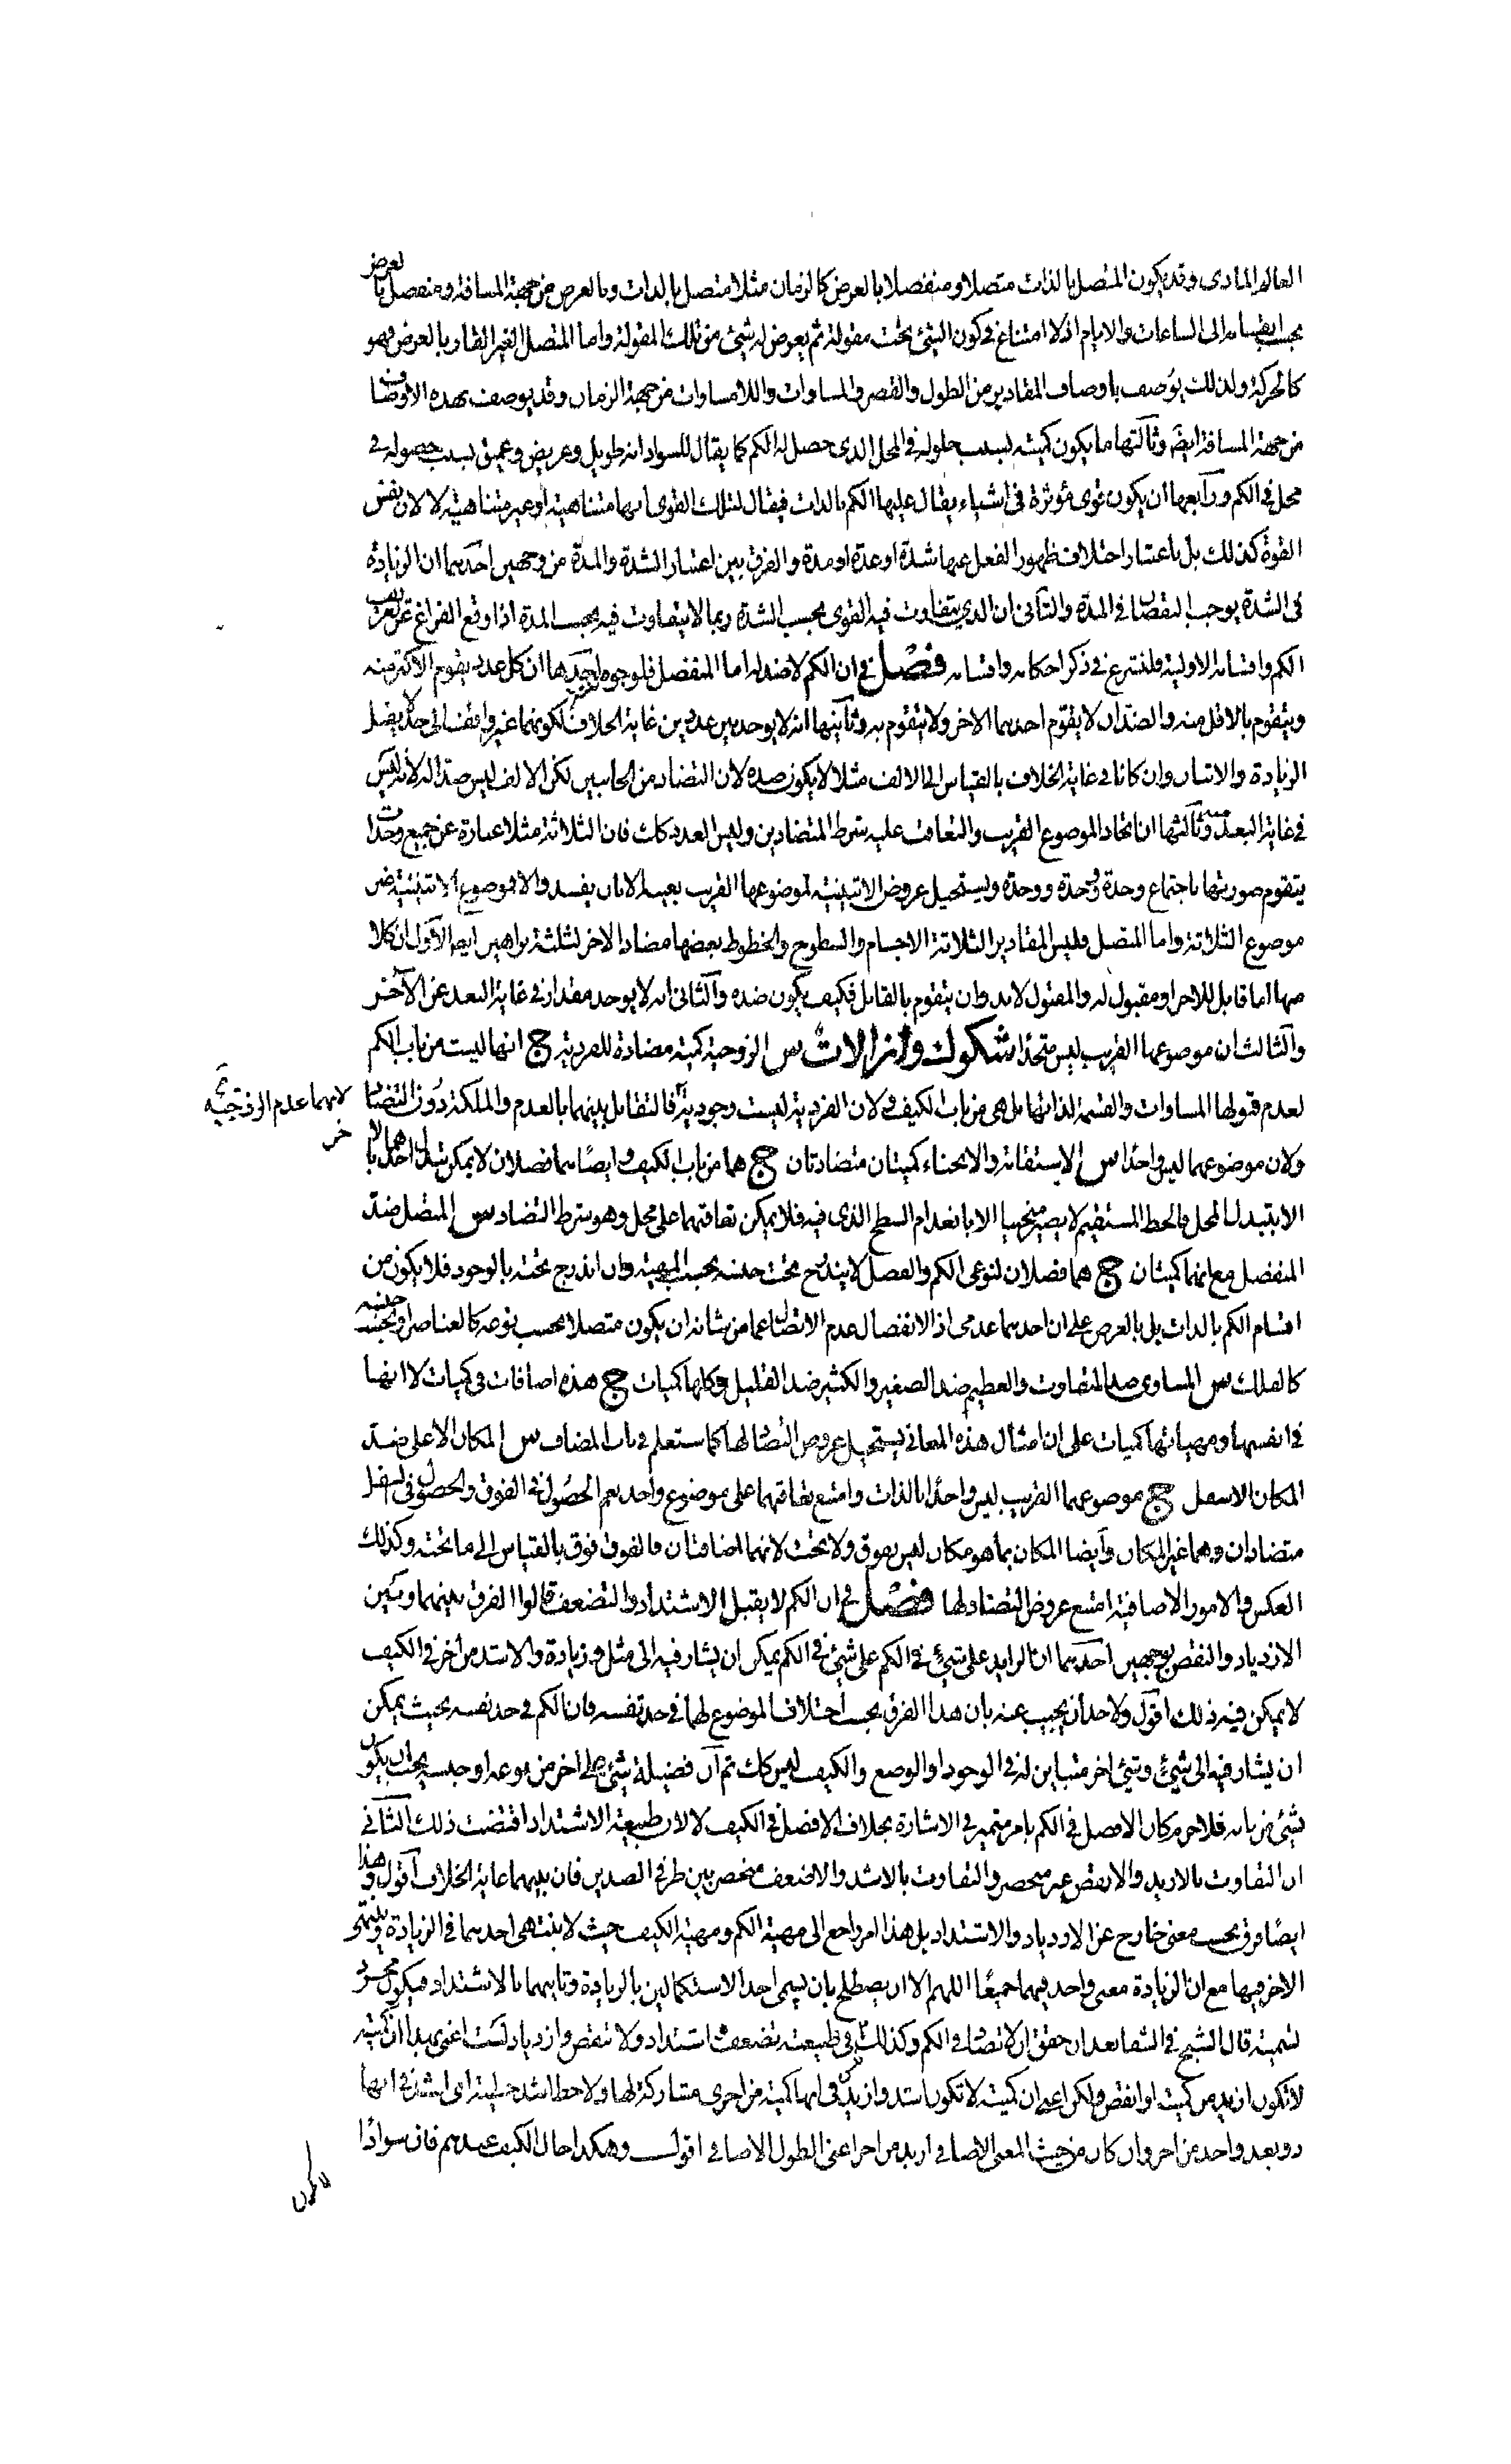 العالم المادى وقد يكون المتصل بالذات متصلا ومنفصلا بالعرض كالزمان مثلا متصل بالذات وبالعرض من جهة المسافة ومنفصل بالعرض
بحسب انقسامه الى الساعات والايام اذ لا امتناع فى كون الشئ تحت مقولة ثم يعرض له شئ من تلك المقولة واما المتصل الغير القار بالعرض فهو
كالحركة ولذلك يوصف باوصاف المقادير من الطول والقصر والمساوات واللامساوات من جهة الزمان وقد يوصف بهذه الاوصاف
من جهة المسافة ايضا وثالثها ما يكون كميته بسبب حلوله فى المحل الذى حصل له الكم كما يقال للسواد انه طويل وعريض وعميق بسبب حصوله فى
محل فى الكم ورابعها ان يكون قوى مؤثرة فى اشياء يقال عليها الكم بالذات فيقال لتلك القوى انها متناهية او غير متناهية لا لان نفس
القوة كذلك بل باعتبار اختلاف ظهور الفعل عنها شدة او عدة او مدة والفرق بين اعتبار الشدة والمدة من وجهين احدهما ان الزيادة
فى الشدة يوجب النقصان فى المدة والثانى ان الذى يتفاوت فيه القوى بحسب الشدة ربما لا يتفاوت فيه بحسب المدة اذا وقع الفراغ عن تعريف
الكم واقسامه الاولية فلنشرع فى ذكر احكامه واقسامه فصل فى ان الكم لا ضد له اما المنفصل فلوجوه احدها ان كل عدد يقوم الاكثر منه
ويتقوم بالاقل منه والضدان لا يقوم احدهما الاخر ولا يتقوم به وثانيها انه لا يوجد بين عددين غاية الخلاف لكونهما غير واقفين الى حد لا يقبل
الزيادة والاثنان وان كانا فى غاية الخلاف بالقياس الى الالف مثلا لا يكون ضده لان التضاد من الجانبين لكن الالف ليس ضدا له لانه ليس
فى غاية البعد منه وثالثها ان اتحاد الموضوع القريب والتعاقب عليه شرط المتضادين وليس العدد كك فان الثلاثة مثلا عبارة عن جميع وحدات
يتقوم صورتها باجتماع وحدة ووحدة ووحدة ويستحيل عروض الاثنينية لموضوعها القريب بعينه الا بان يفسد والا فموضوع الاثنينية
موضوع الثلاثة واما المتصل فليس المقادير الثلاثة الاجسام والسطوح والخطوط بعضها مضادا لاخر لثلثة براهين ايضا الاول ان كلا
منها اما قابل للاخر او مقبول له والمقبول لابد وان يتقوم بالقابل فكيف يكون ضده والثانى انه لا يوجد مقدار فى غاية البعد عن الآخر
والثالث ان موضوعها القريب ليس متحدا شكوك وازالات س الزوجية كمية مضادة للفردية ج انها ليست من باب الكم
لعدم قبولها المساوات والقسمة لذاتها بل هى من باب الكيف ولان الفردية ليست وجودية فالتقابل بينهما بالعدم والملكة دون التضاد
لانها عدم الزوجية
ولان موضوعهما ليس واحدا س الاستقامة والانحناء كميتان متضادتان ج هما من باب الكيف وايضا هما فصلان لا يمكن تبدل احدهما بالاخر
الا بتبدل المحل فالخط المستقيم لا يصير منحنيا الا بانعدام السطح الذى فيه فلا يمكن تعاقبهما على محل وهو شرط التضاد س المتصل ضد
المنفصل مع انهما كميتان ج هما فصلان لنوعى الكم والفصل لا يندرج تحت جنسه بحسب المهية وان اندرج تحته بالوجود فلا يكون من
اقسام الكم بالذات بل بالعرض على ان احدهما عدمى اذ الانفصال عدم الاتصال عما من شانه ان يكون متصلا بحسب نوعه كالعناصر او بحسب جنسه
كالفلك س المساوى ضد المتفاوت والعظيم ضد الصغير والكثير ضد القليل وكلها كميات ج هذه اضافات فى كميات لا انها
فى انفسها ومهياتها كميات على ان امثال هذه المعانى يستحيل عروض التضاد لها كما ستعلم فى باب المضاف س المكان الاعلى ضد
المكان الاسفل ج موضوعهما القريب ليس واحدا بالذات وامتنع تعاقبهما على موضوع واحد نعم الحصول فى الفوق والحصول فى السفل
متضادان وهما غير المكان وايضا المكان بما هو مكان ليس بفوق ولا تحت لانهما اضافتان فالفوق فوق بالقياس الى ما تحته وكذلك
العكس والامور الاضافية امتنع عروض التضاد لها فصل فى ان الكم لا يقبل الاشتداد والتضعف قالوا الفرق بينهما وبين
الازدياد والنقص بوجهين احدهما ان الزايد على شئ فى الكم على شئ فى الكم يمكن ان يشار فيه الى مثل وزيادة والاشد من اخر فى الكيف
لا يمكن فيه ذلك اقول ولاحد ان يجيب عنه بان هذا الفرق بحسب اختلاف الموضوع لهما فى حد نفسه فان الكم فى حد نفسه بحيث يمكن
ان يشار فيه الى شئ وشئ اخر متباين له فى الوجود او الوضع والكيف ليس كك ثم ان فضيلة شئ على اخر من نوعه او جنسه يجب ان يكون
بشئ من بابه فلا جرم كان الافضل فى الكم بامر متميز فى الاشارة بخلاف الافضل فى الكيف لا لان طبيعة الاشتداد اقتضت ذلك الثانى
ان التفاوت بالازيد والانقص غير منحصر والتفاوت بالاشد والاضعف منحصر بين طرفى الضدين فان بينهما غاية الخلاف اقول وهذا
ايضا فرق بحسب معنى خارج عن الازدياد والاشتداد بل هذا امر راجع الى مهية الكم ومهية الكيف حيث لا ينتهى احدهما فى الزيادة وينتهى
الاخر فيها مع ان الزيادة معنى واحد فيهما جميعا اللهم الا ان يصطلح بان يسمى احد الاستكمالين بالزيادة وثانيهما بالاشتداد فيكون مجرد
تسمية قال الشيخ فى الشفا بعد ان حقق ان لا تضاد فى الكم وكذلك ليس فى طبيعته تضعف واشتداد ولا تنقص وازدياد لست اعنى بهذا ان كمية
لا تكون ازيد من كمية او انقص ولكن اعنى ان كمية لا تكون اشد وازيد فى انها كمية من اخرى مشاركة لها ولا خط اشد خطية اى اشد فى انها
ذو بعد واحد من اخر وان كان من حيث المعنى الاضافى ازيد من اخر اعنى الطول الاضافى اقول وهكذا حال الكيف عندهم فان سوادا